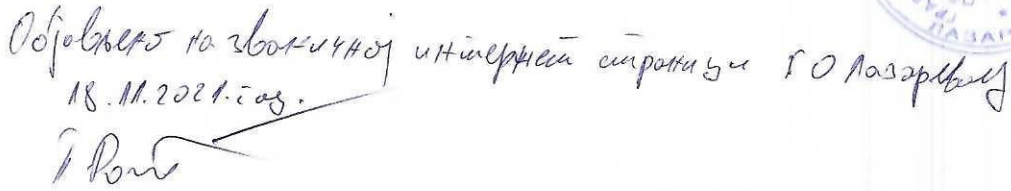 Објављено на званичној интернет страници ГО Лазаревац
18.11.2021. год.
ЛАЗАР